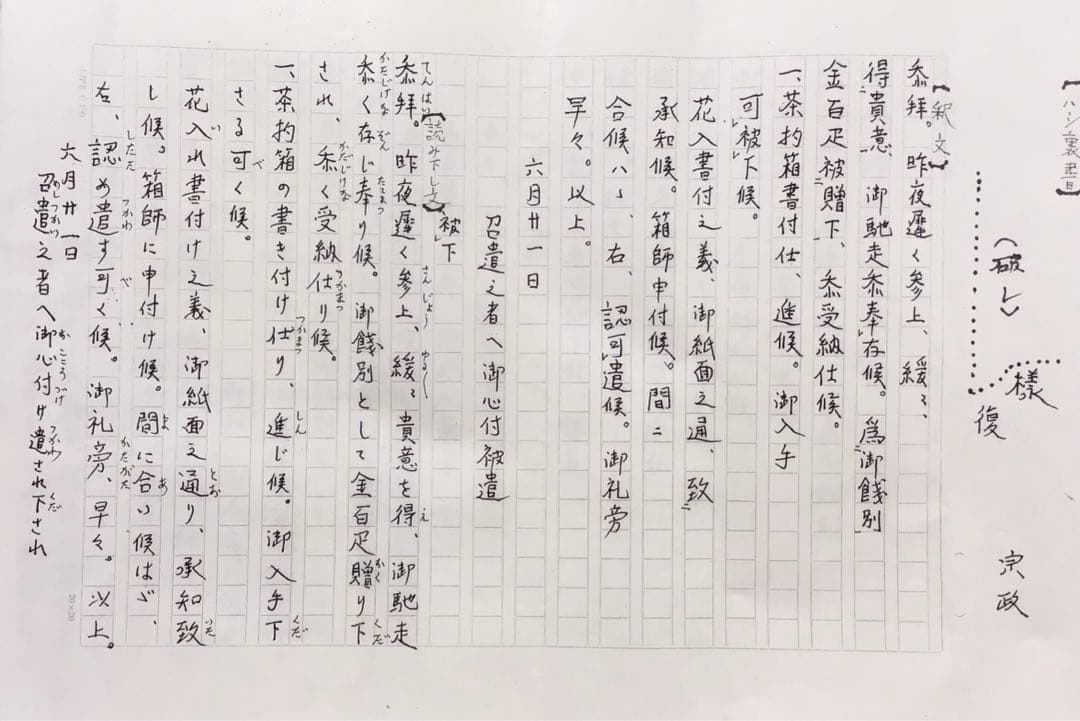 【ハシ裏書】
(破レ)
様
復
宗政
【釈文】
忝拝。昨夜遅く参上、緩々、
得貴意、御馳走忝奉存候。為御餞別
金百疋被贈下、忝受納仕候。
一、茶杓箱書付仕、進候。御入手
可被下候。
花入書付之義、御紙面之通、致
承知候。箱師申付候。間ニ
合候ハヽ、右、認可遣候。御礼旁
早々。以上。
六月廿一日
召遣之者へ御心付被遣
被下
【読み下し文】
忝拝。昨夜遅く参上、緩々貴意を得、御馳走
忝く存じ奉り候。御餞別として金百疋贈り下
され、忝く受納仕り候。
一、茶杓箱の書き付け仕り、進じ候。御入手下
さる可く候。
花入れ書付け之義、御紙面之通り、承知致
し候。箱師に申付け候。間に合い候はゞ、
右、認め遣す可く候。御礼旁、早々。以上。
六月廿一日
召遣之者へ御心付け遣され下され